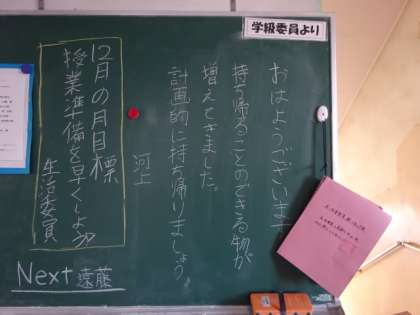 学級委員より
おはようございます
持ち帰ることのできる物が
増えてきました。
計画的に持ち帰りましょう。
河上
12月の月目標
授業準備を早くしよう
生活委員
Next 遠藤